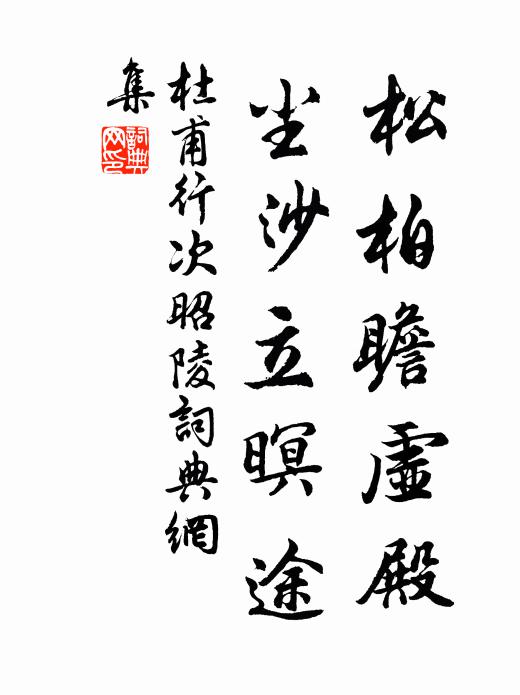 松柏瞻虛殿
尘沙立暝途
杜甫行次昭陵詞典網
集
詞典
网印